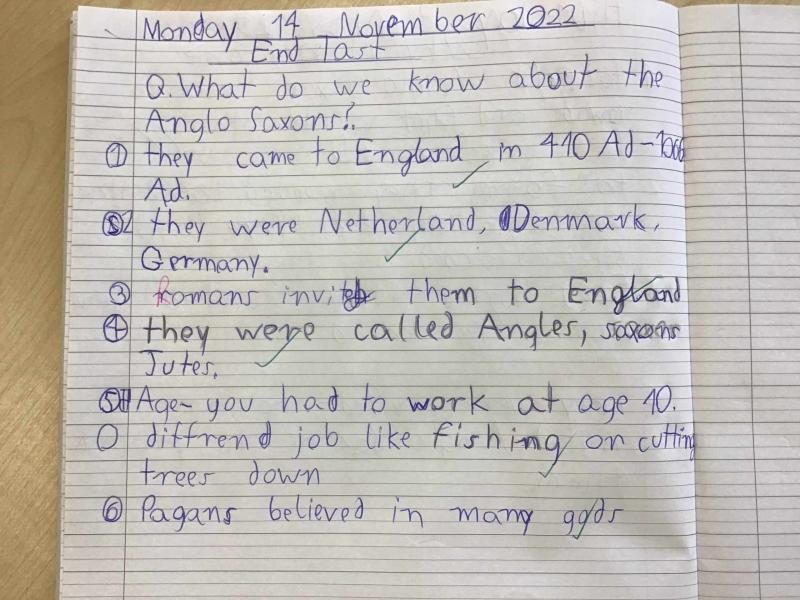 Monday 14 November 2022
End Tast
Q. What do we know about the
Anglo Saxons?
① they came to England in 410 Ad-1066
Ad.
2 they were Netherland, Denmark,
Germany.
③ Romans invited them to England
④ they were called Angles, saxons
Jutes.
⑤ Age- you had to work at age 10.
diffrend job like fishing or cutting
trees down
⑥ Pagans believed in many gods